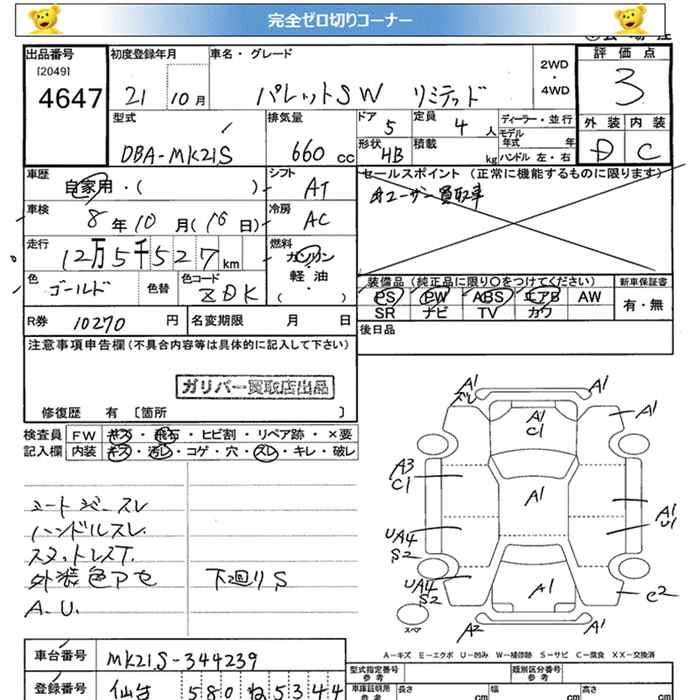 完全ゼロ切りコーナー
出品番号 初度登録年月 車名・グレード 2WD・4WD 評価点
[2049]
4647 21 10月 パレットSW リミテッド 3
型式 排気量 ドア 5 定員 4人 ディーラー・並行 外装 内装
DBA-MK21S 660cc 形状 HB 積載 kg モデル年式 年 ハンドル 左・右 D C
車歴 自家用・( ) シフト AT セールスポイント(正常に機能するものに限ります)
車検 8年10月(16日) 冷房 AC ユーザー買取車
走行 12万5千527km 燃料 ガソリン・軽油・( )
色 ゴールド 色替 色コード ZDK 装備品(純正品に限り〇をつけてください) 新車保証書
PS PW ABS エアB AW 有・無
SR ナビ TV カワ
R券 10270円 名変期限 月 日 後日品
注意事項申告欄(不具合内容等は具体的に記入して下さい)
ガリバー買取店出品
修復歴 有〔箇所 〕
検査員記入欄 FW キズ・飛石・ヒビ割・リペア跡・×要
内装 キズ・汚レ・コゲ・穴・スレ・キレ・破レ
シートジースレ
ハンドルスレ.
スタットレスT.
外装色アセ 下廻りS
A.U.
A1 ズレ A1
A1 C1 A1
A3 C1
A1 A1 U1
UA4 S2
UA4 S2 A1 C2
スペア A2 A1
A-キズ E-エクボ U-凹み W-補修跡 S-サビ C-腐食 XX-交換済
車台番号 MK21S-344239 型式指定番号 参考 類別区分番号 参考
登録番号 仙台 580 ね 5344 車庫証明用 参考 長さ cm 幅 cm 高さ cm